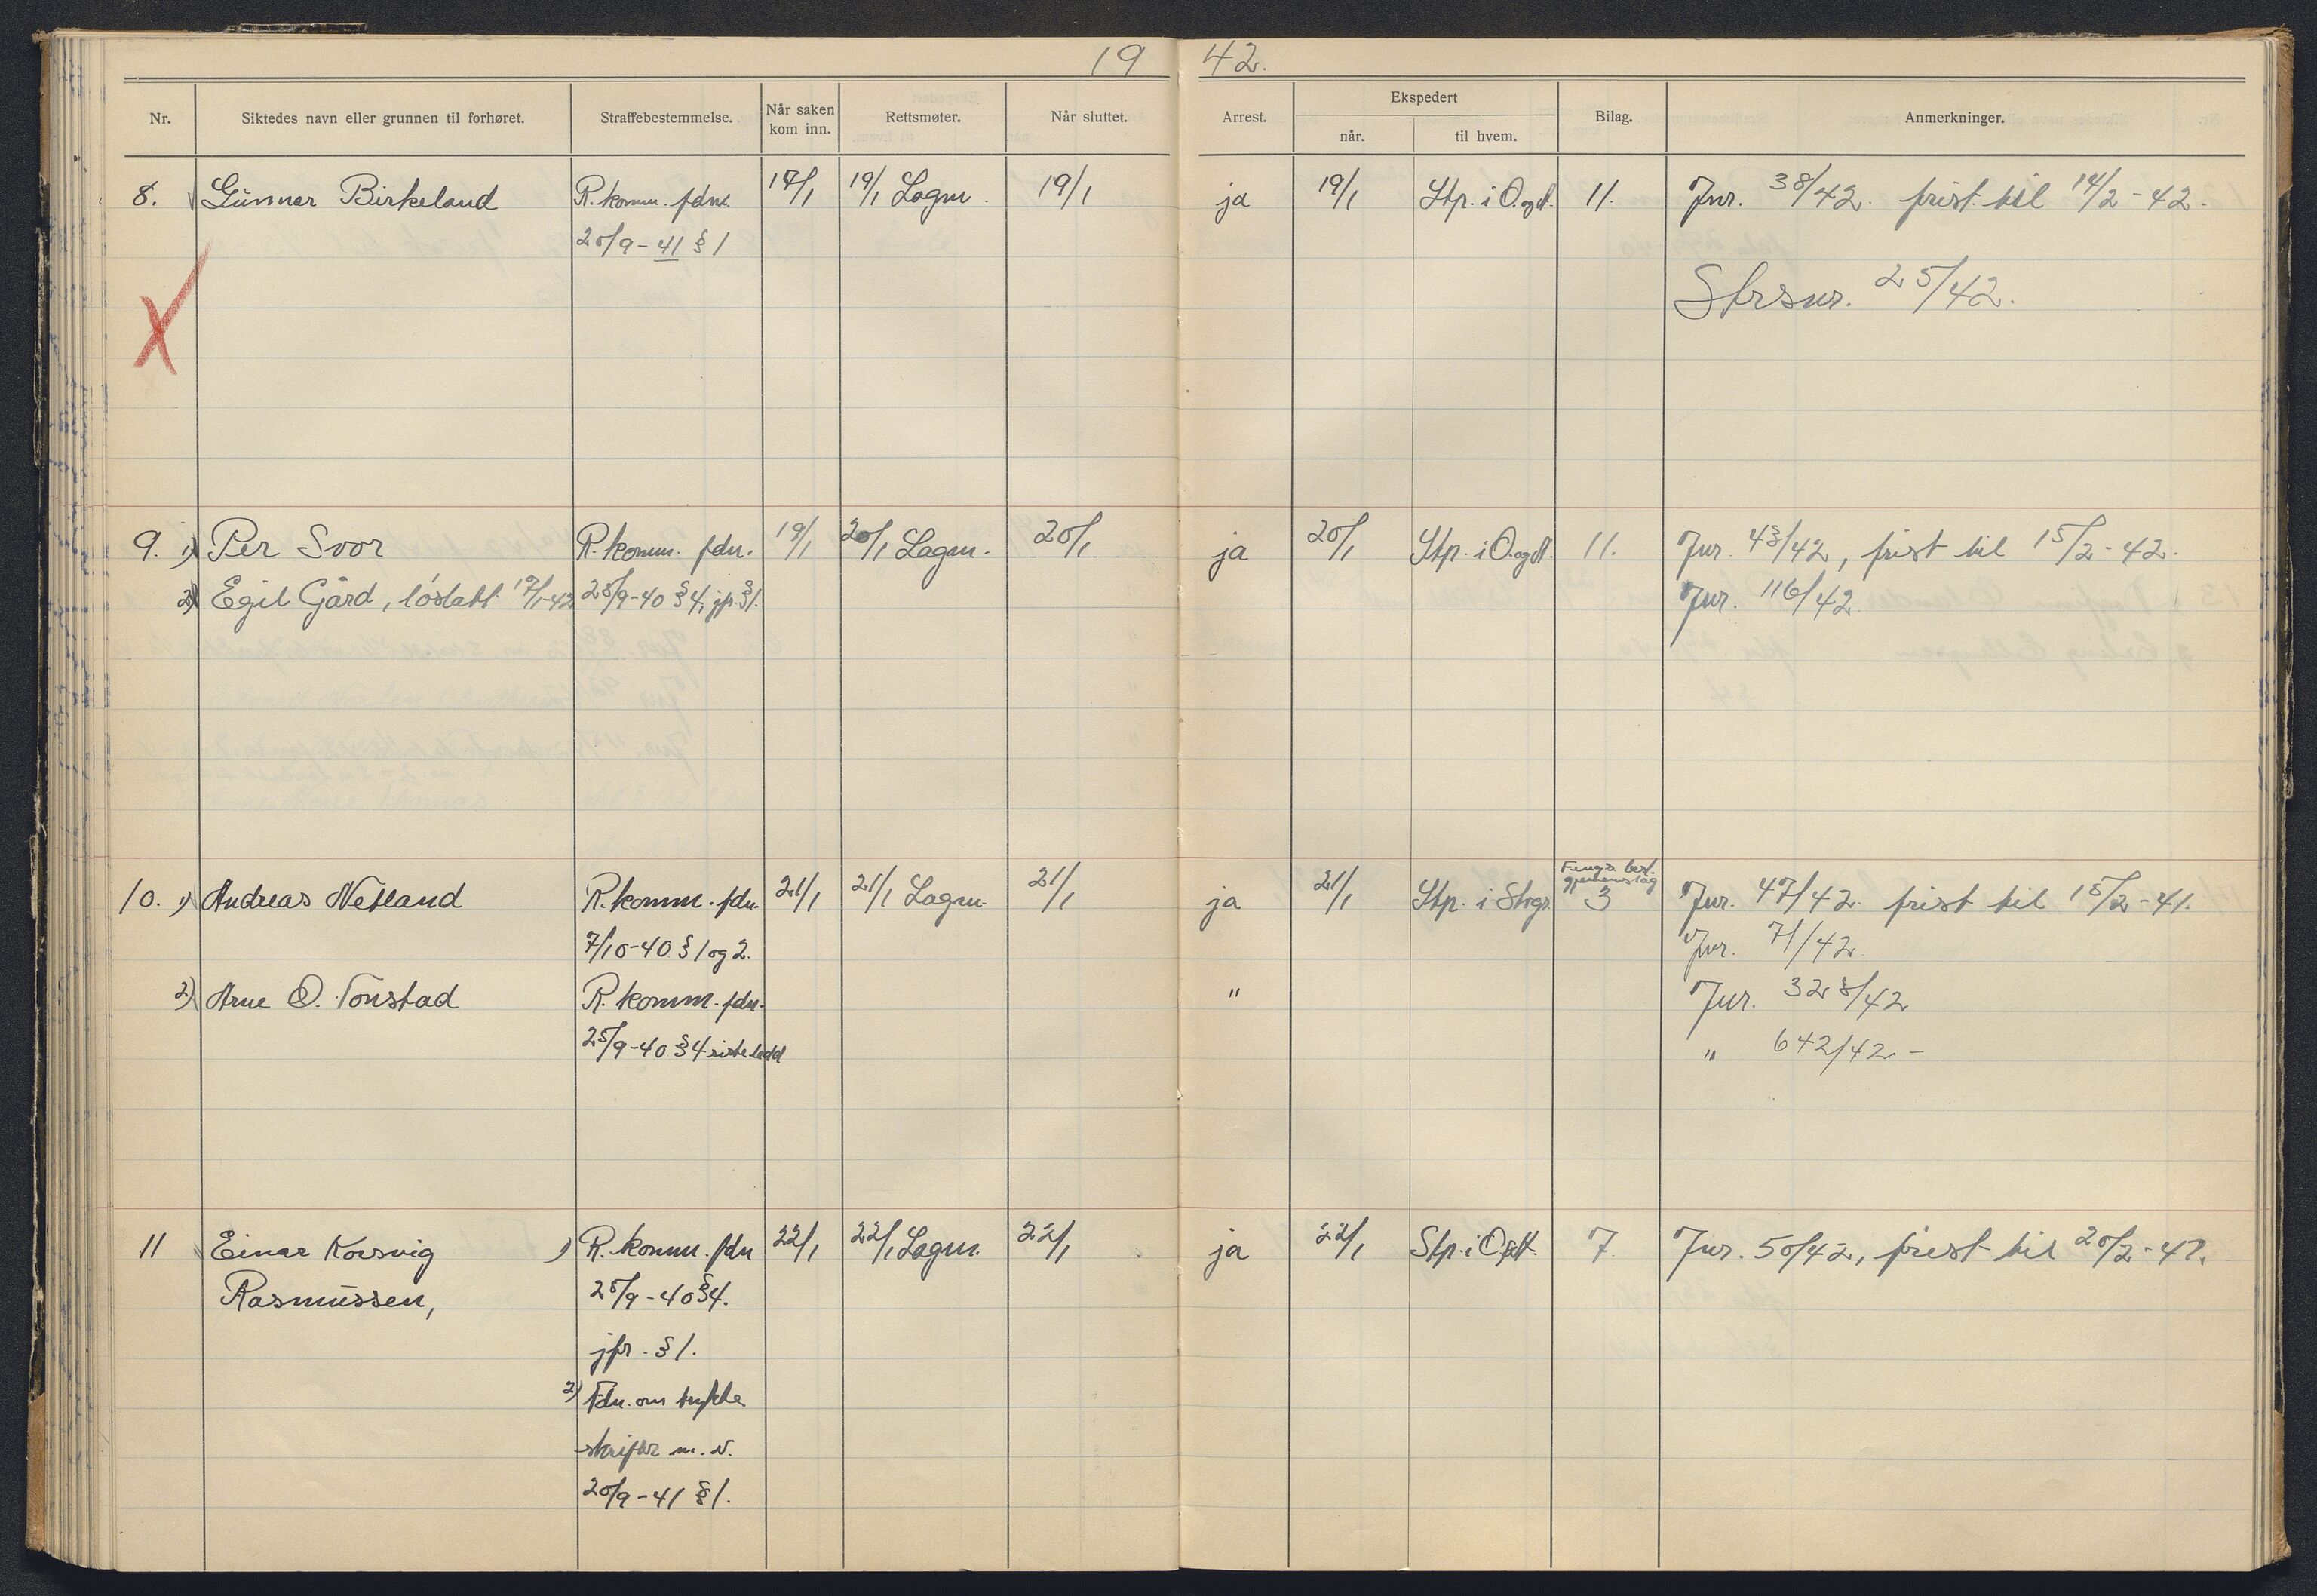 19 42.
Nr. Siktedes navn eller grunnen til forhøret. Straffebestemmelse. Når saken kom inn. Rettsmøter. Når sluttet. Arrest. Ekspedert når. til hvem. Bilag. Anmerkninger.
8. Gunnar Birkeland R. komm. fdn. 17/1 19/1 Lagm. 19/1 ja 19/1 Stp. i O. og A. 11. Jnr. 38/42. frist til 14/2-42.
20/9-41 § 1
Strsnr. 25/42.
9. 1) Per Svor R. komm. fdn. 19/1 20/1 Lagm. 20/1 ja 20/1 Stp. i O. og A. 11. Jnr. 43/42, frist til 15/2-42.
2) Egil Gård, løslatt 19/1-42 25/9-40 § 4, jfr. § 1. Jnr. 116/42
10. 1) Andreas Netland R. komm. fdn. 21/1 21/1 Lagm. 21/1 ja 21/1 Stp. i Strgr. 3 Jnr. 47/42. frist til 15/2-41.
7/10-40 § 1 og 2. Jnr. 71/42.
2) Arne O. Tonstad R. komm. fdn. " Jnr. 328/42
25/9-40 § 4 siste ledd " 642/42 -
11 Einar Korsvig 1) R. komm. fdn 22/1 22/1 Lagm. 22/1 ja 22/1 Stp. i O. og A. 7. Jnr. 50/42, frist til 20/2-42.
Rasmussen, 25/9-40 § 4.
jfr. § 1.
2) Fdn. om trykte
skrifter m. v.
20/9-41 § 1.